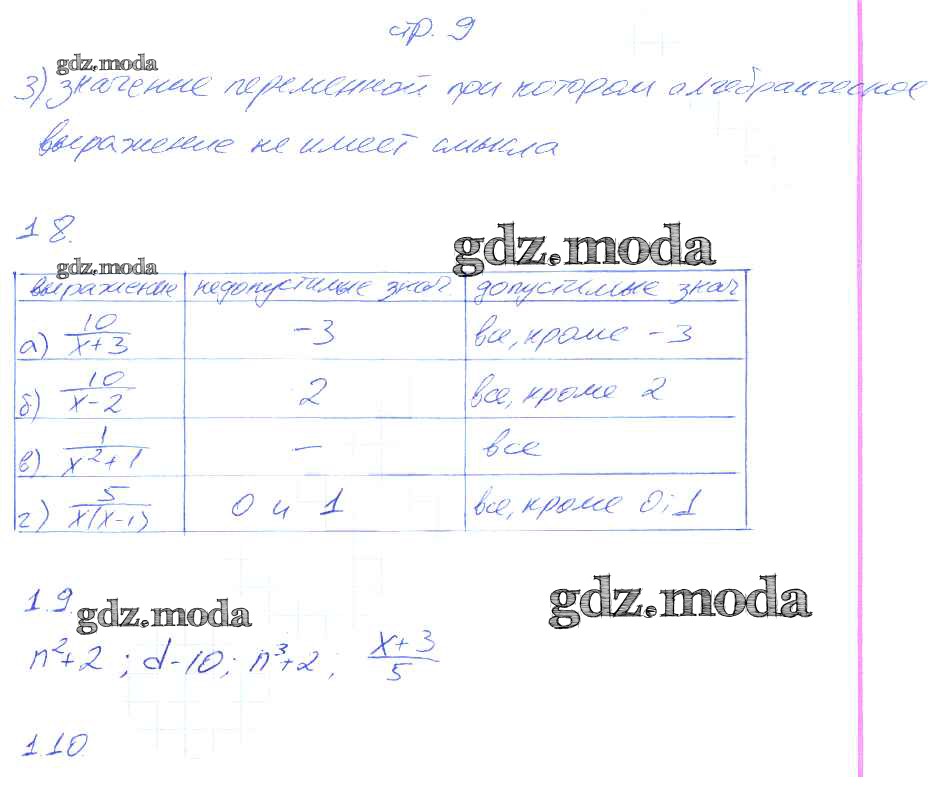 стр. 9
gdz.moda
3) значение переменной при котором алгебраическое
выражение не имеет смысла
1 8.
gdz.moda
gdz.moda
выражение недопустимые знач. допустимые знач
а) 10/(x+3) -3 все, кроме -3
б) 10/(x-2) 2 все, кроме 2
в) 1/(x²+1) — все
г) 5/(x(x-1)) 0 и 1 все, кроме 0; 1
1.9.
gdz.moda
gdz.moda
n²+2 ; d-10 ; n³+2 ; (x+3)/5
1.10.